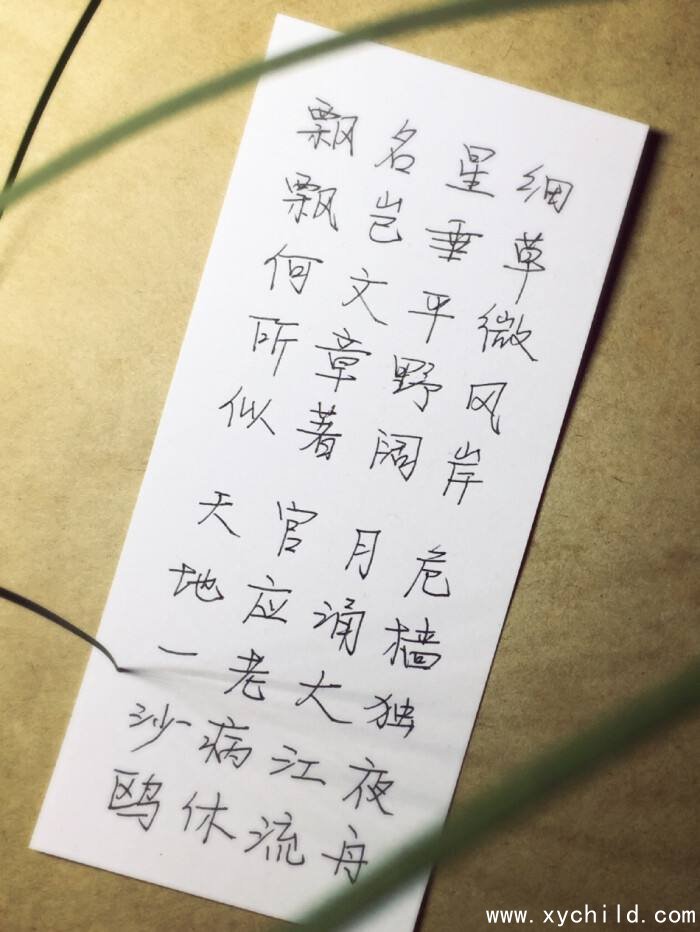 细草微风岸 危樯独夜舟
星垂平野阔 月涌大江流
名岂文章著 官应老病休
飘飘何所似 天地一沙鸥
www.xychild.com